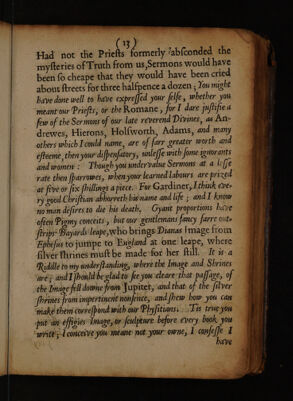 ( 13 )
Had not the Priests formerly absconded the
mysteries of Truth from us, Sermons would have
been so cheape that they would have been cried
about streets for three halfpence a dozen ; You might
have done well to have expressed your selfe, whether you
meant our Priests, or the Romane, for I dare justifie a
few of the Sermons of our late reverend Divines, as An-
drewes, Hierons, Holsworth, Adams, and many
others which I could name, are of farr greater worth and
esteeme, then your dispensatory, unlesse with some ignorants
and women : Though you under value Sermons at a lesse
rate then sparrowes, when your learned labours are prized
at five or six shillings a piece. For Gardiner, I think eve-
ry good Christian abhorreth his name and life ; and I know
no man desires to die his death. Gyant proportions have
often Pigmy conceits, but our gentlemans fancy farre out-
strips Bayards leape, who brings Dianas Image from
Ephesus to jumpe to England at one leape, where
silver shrines must be made for her still. It is a
Riddle to my understanding, where the Image and Shrines
are ; and I should be glad to see you cleare that passage, of
the Image fell downe from Jupiter, and that of the silver
shrines from impertinent nonsence, and shew how you can
make them correspond with our Physitians. Tis true you
put an effigies Image, or sculpture before every book you
write ; I conceive you meant not your owne, I confesse I
have